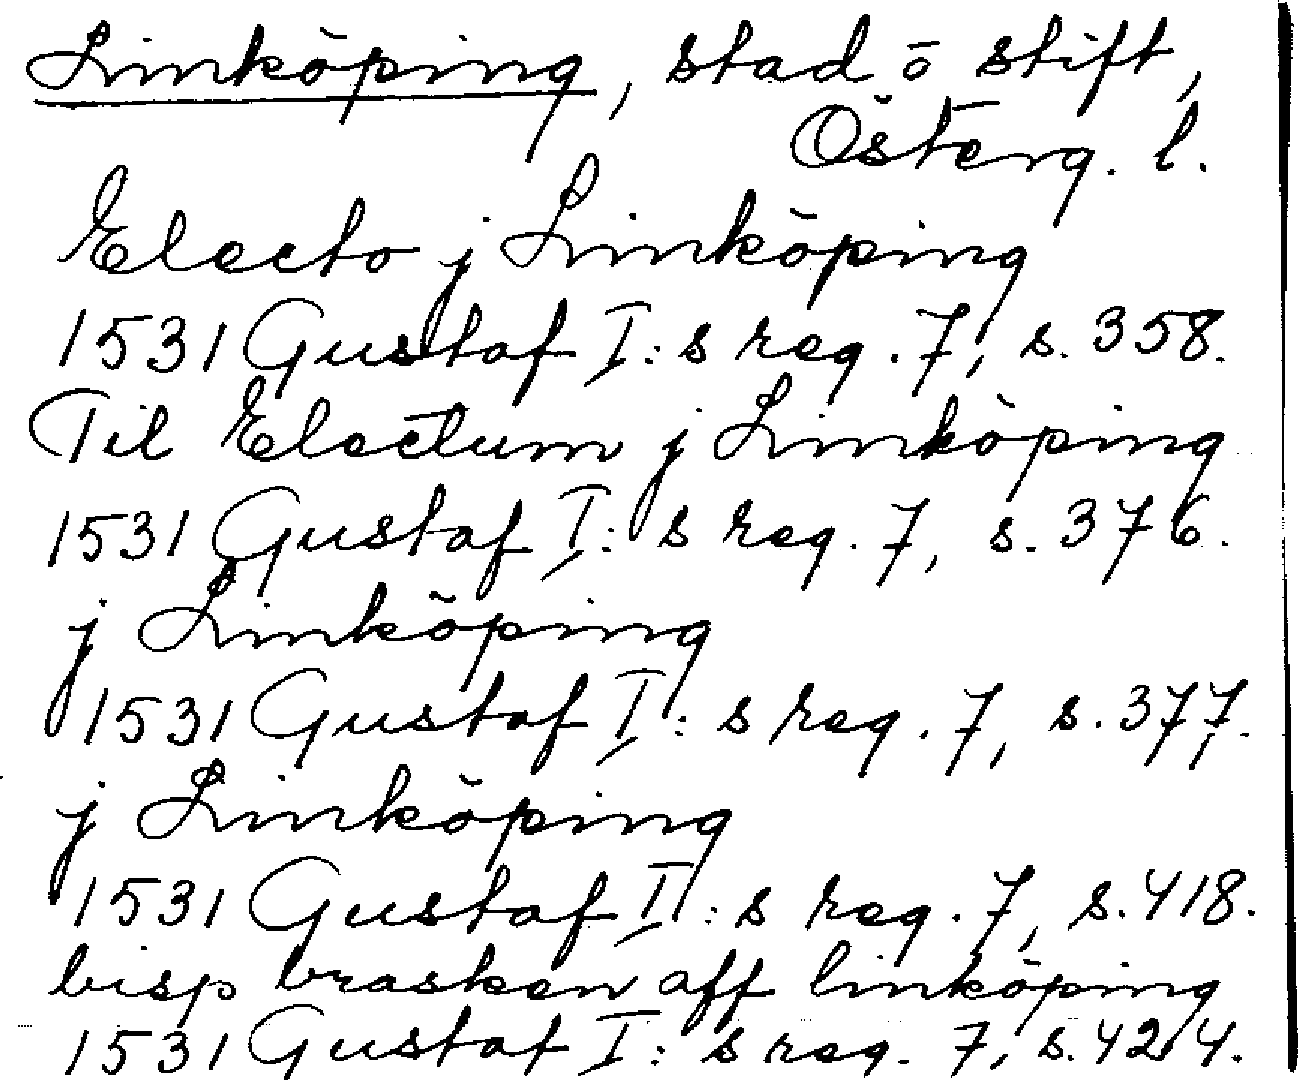 Linköping, stad o stift,
Österg. l.
Electo j Linköping
1531 Gustaf I:s reg. 7, s. 358.
Til Electum j Linköping
1531 Gustaf I:s reg. 7, s. 376.
j Linköping
1531 Gustaf I:s reg. 7, s. 377.
j Linköping
1531 Gustaf I:s reg. 7, s. 418.
bisp brasken aff linköping
1531 Gustaf I:s reg. 7, s. 424.